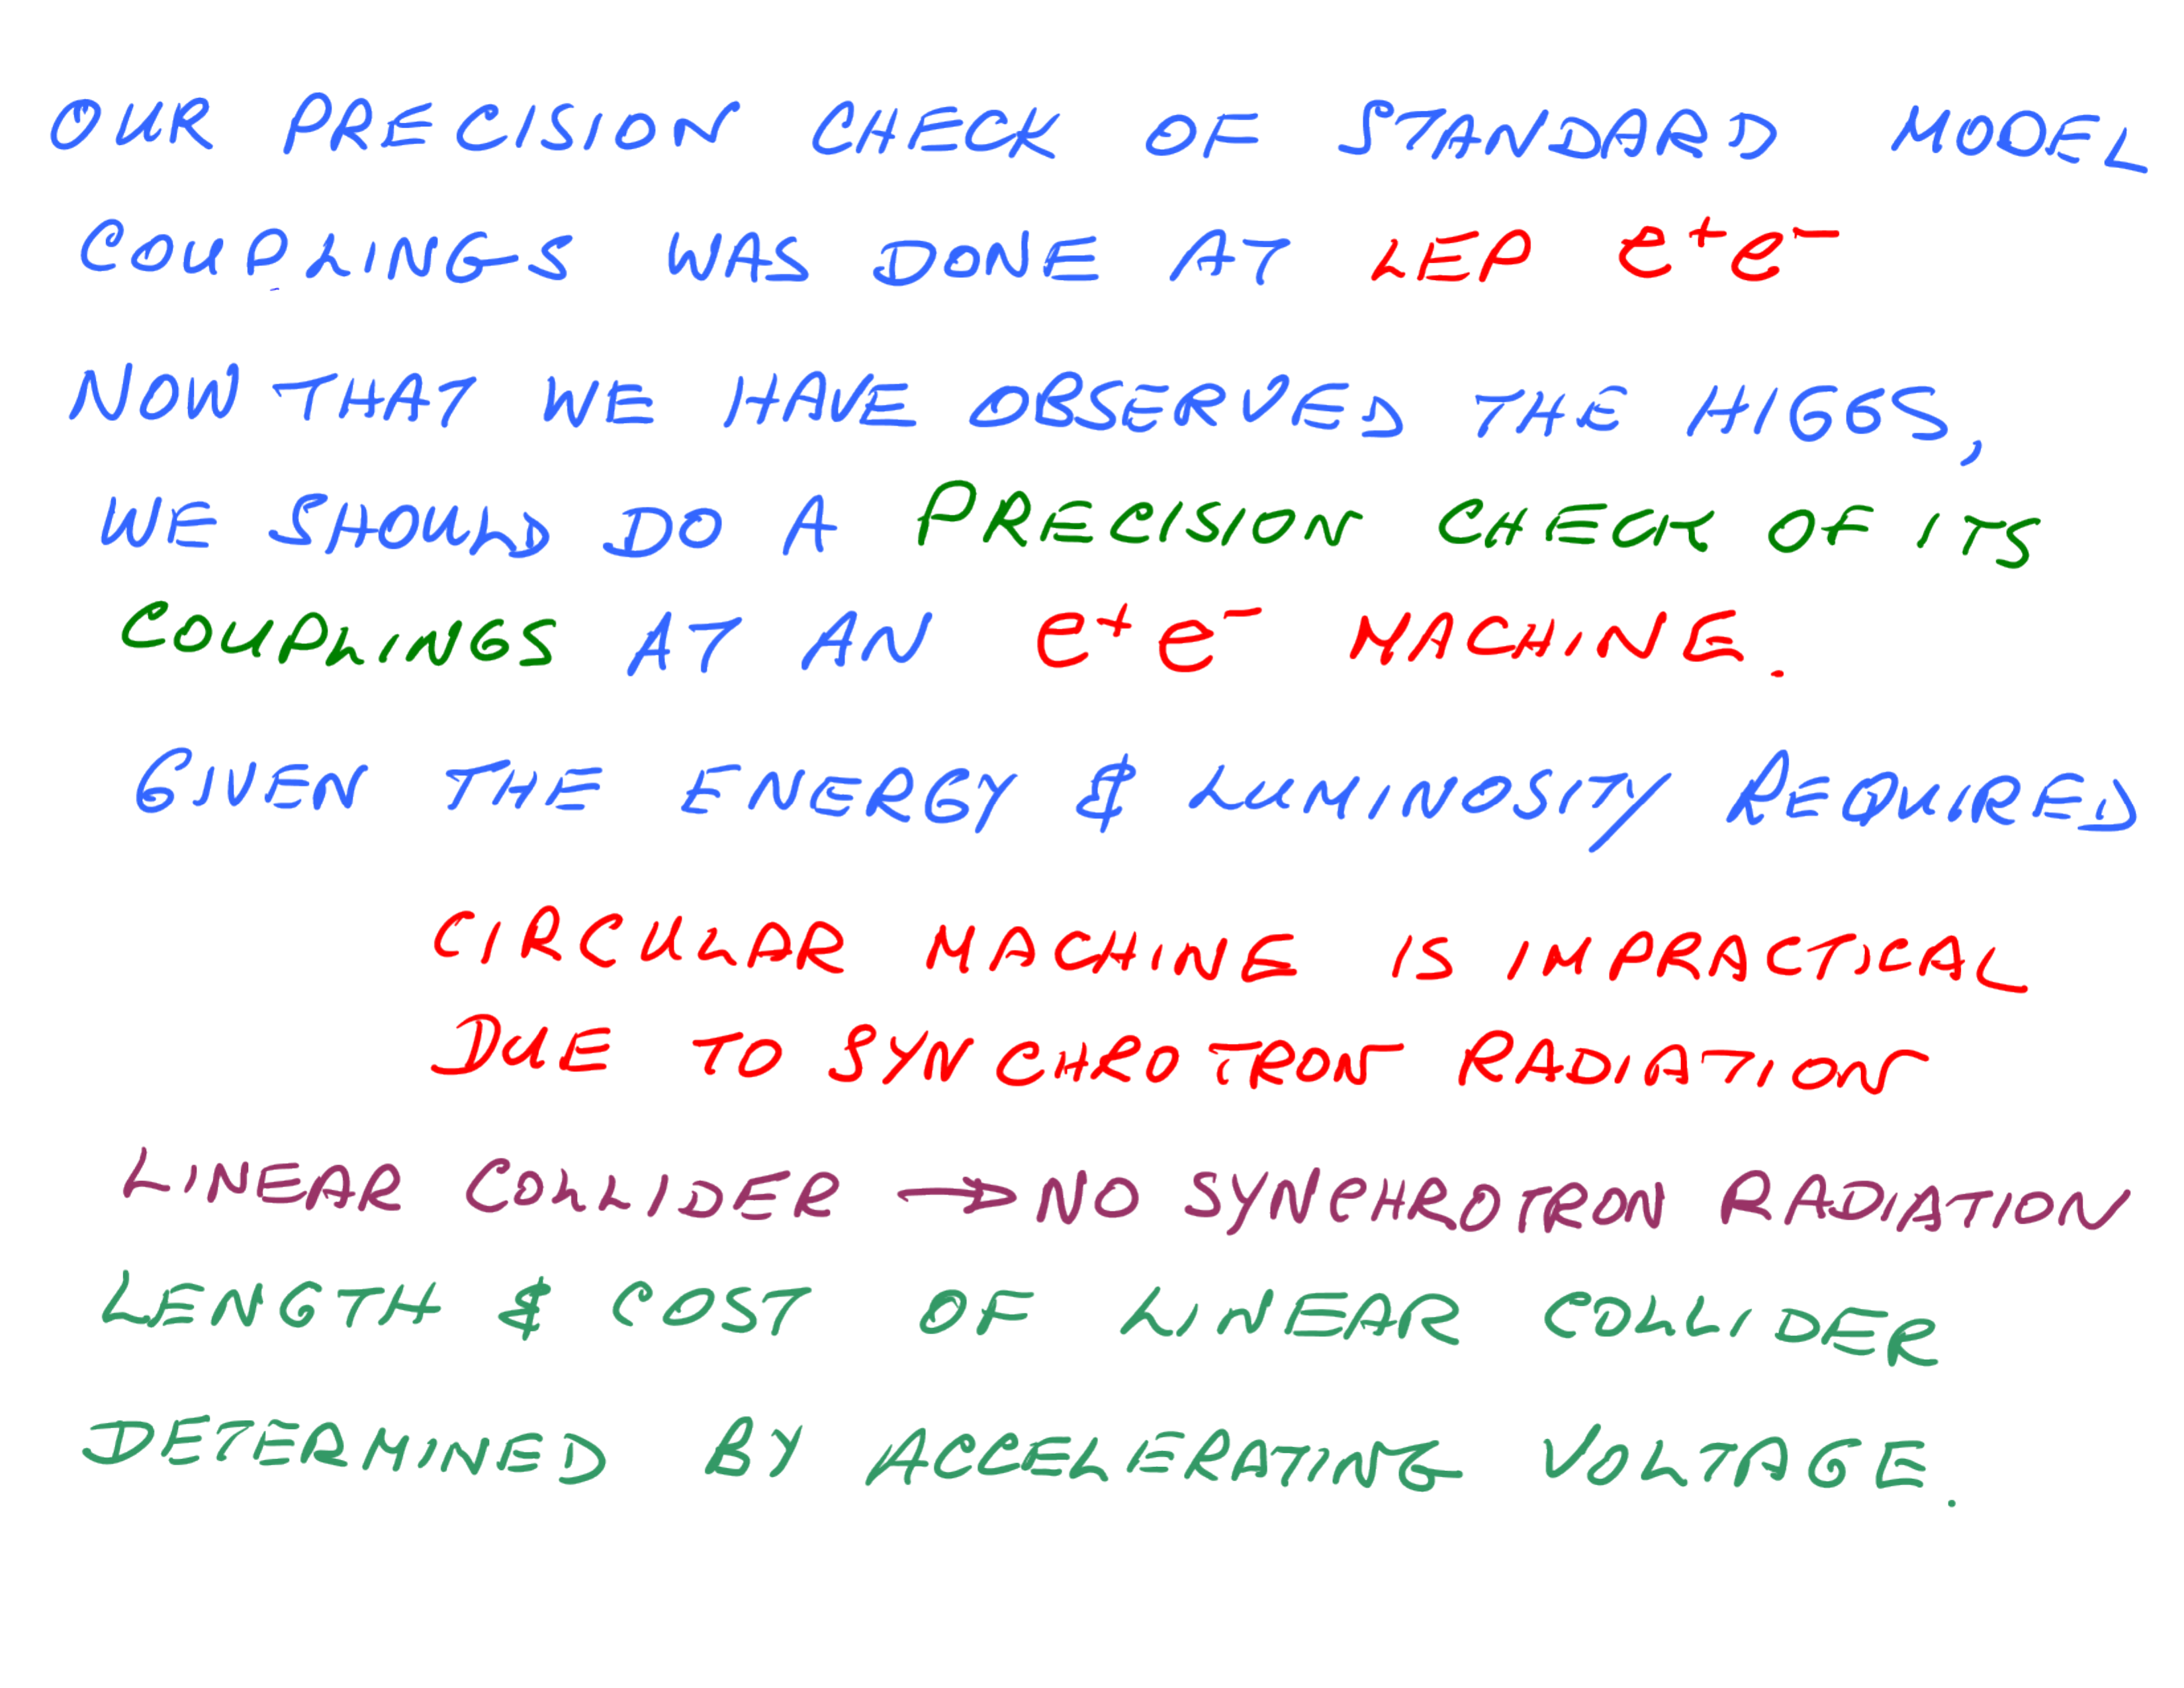 OUR PRECISION CHECK OF STANDARD MODEL
COUPLINGS WAS DONE AT LEP e⁺e⁻
NOW THAT WE HAVE OBSERVED THE HIGGS,
WE SHOULD DO A PRECISION CHECK OF ITS
COUPLINGS AT AN e⁺e⁻ MACHINE.
GIVEN THE ENERGY & LUMINOSITY REQUIRED
CIRCULAR MACHINE IS IMPRACTICAL
DUE TO SYNCHROTRON RADIATION
LINEAR COLLIDER → NO SYNCHROTRON RADIATION
LENGTH & COST OF LINEAR COLLIDER
DETERMINED BY ACCELERATING VOLTAGE.